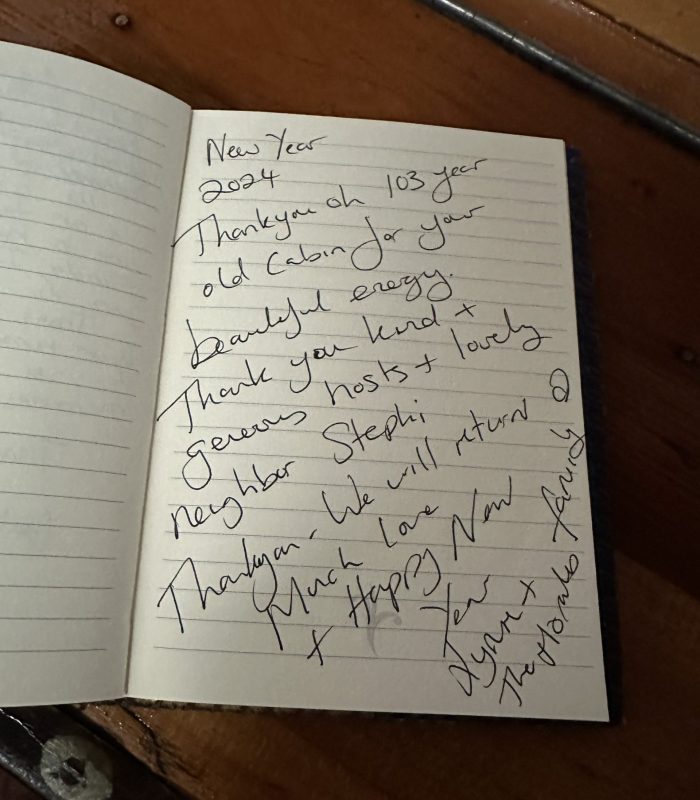 New Year
2024
Thankyou oh 103 year
old Cabin for your
beautiful eregy.
Thank you kind +
generous hosts + lovely
neighbor Stephi
Thankyou. We will return
Much Love
+ Happy New
Year
The family